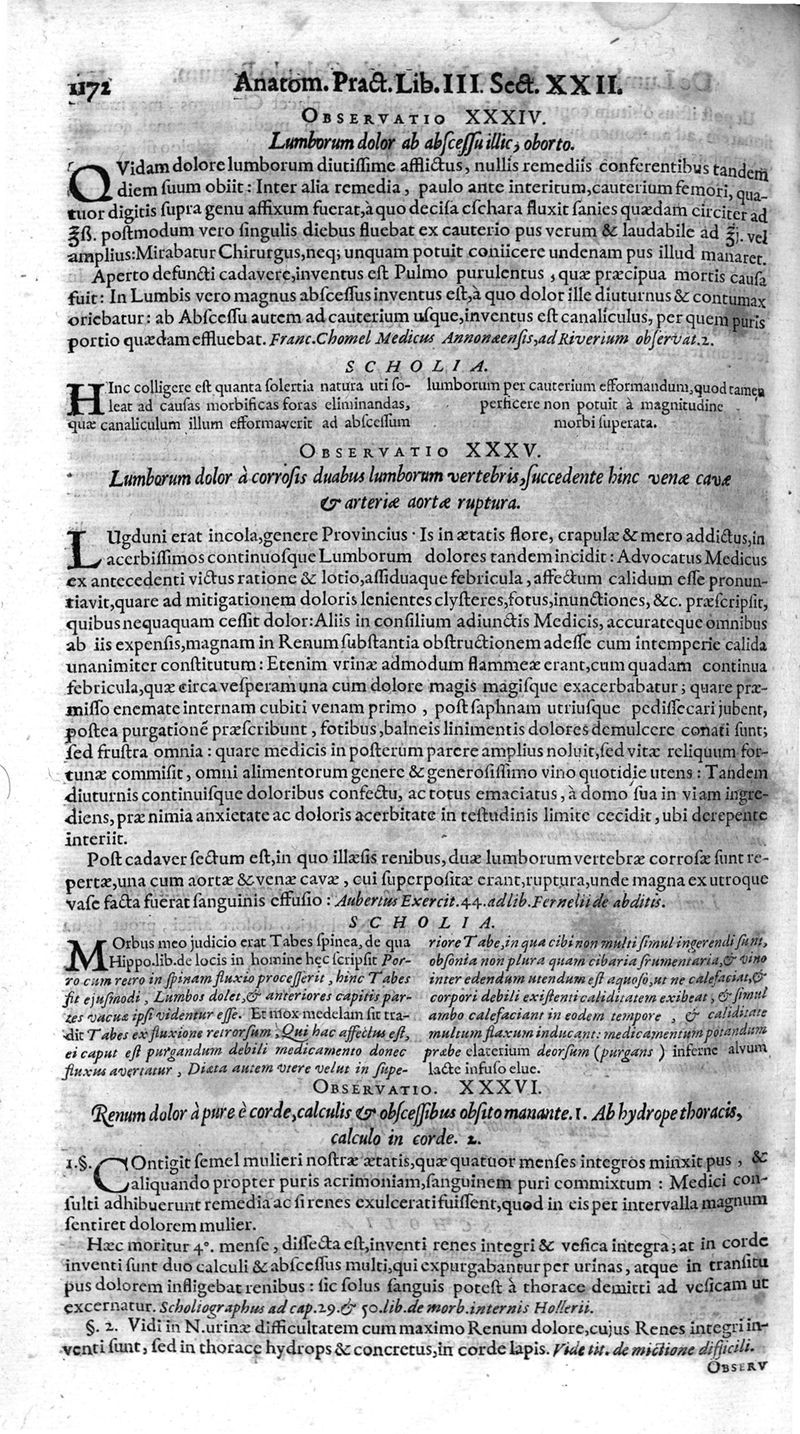 1172 Anatom. Pract. Lib. III. Sect. XXII.
OBSERVATIO XXXIV.
Lumborum dolor ab abſceſſu illic, oborto.
QVidam dolore lumborum diutiſſime afflictus, nullis remediis conferentibus tandem
diem ſuum obiit: Inter alia remedia, paulo ante interitum, cauterium femori, qua-
tuor digitis ſupra genu affixum fuerat, à quo deciſa eſchara fluxit ſanies quædam circiter ad
℥ß. poſtmodum vero ſingulis diebus fluebat ex cauterio pus verum & laudabile ad ℥j. vel
amplius: Mirabatur Chirurgus, neq; unquam potuit coniicere undenam pus illud manaret.
Aperto defuncti cadavere, inventus eſt Pulmo purulentus, quæ præcipua mortis cauſa
fuit: In Lumbis vero magnus abſceſſus inventus eſt, à quo dolor ille diuturnus & contumax
oriebatur: ab Abſceſſu autem ad cauterium uſque, inventus eſt canaliculus, per quem puris
portio quædam effluebat. Franc. Chomel Medicus Annonæenſis, ad Riverium obſervat. 2.
SCHOLIA.
HInc colligere eſt quanta ſolertia natura uti ſo-
leat ad cauſas morbificas foras eliminandas,
quæ canaliculum illum efformaverit ad abſceſſum
lumborum per cauterium efformandum, quod tamen
perficere non potuit à magnitudine
morbi ſuperata.
OBSERVATIO XXXV.
Lumborum dolor à corroſis duabus lumborum vertebris, ſuccedente hinc venæ cavæ
& arteriæ aortæ ruptura.
LUgduni erat incola, genere Provincius · Is in ætatis flore, crapulæ & mero addictus, in
acerbiſſimos continuoſque Lumborum dolores tandem incidit: Advocatus Medicus
ex antecedenti victus ratione & lotio, aſſiduaque febricula, affectum calidum eſſe pronun-
tiavit, quare ad mitigationem doloris lenientes clyſteres, fotus, inunctiones, &c. præſcripſit,
quibus nequaquam ceſſit dolor: Aliis in conſilium adiunctis Medicis, accurateque omnibus
ab iis expenſis, magnam in Renum ſubſtantia obſtructionem adeſſe cum intemperie calida
unanimiter conſtitutum: Etenim vrinæ admodum flammeæ erant, cum quadam continua
febricula, quæ circa veſperam una cum dolore magis magiſque exacerbabatur; quare præ-
miſſo enemate internam cubiti venam primo, poſt ſaphnam utriuſque pediſſecari jubent,
poſtea purgationé præſcribunt, fotibus, balneis linimentis dolores demulcere conati ſunt;
ſed fruſtra omnia: quare medicis in poſterum parere amplius noluit, ſed vitæ reliquum for-
tunæ commiſit, omni alimentorum genere & generoſiſſimo vino quotidie utens: Tandem
diuturnis continuiſque doloribus confectu, ac totus emaciatus, à domo ſua in viam ingre-
diens, præ nimia anxietate ac doloris acerbitate in teſtudinis limite cecidit, ubi derepente
interiit.
Poſt cadaver ſectum eſt, in quo illæſis renibus, duæ lumborum vertebræ corroſæ ſunt re-
pertæ, una cum aortæ & venæ cavæ, cui ſuperpoſitæ erant, ruptura, unde magna ex utroque
vaſe facta fuerat ſanguinis effuſio: Aubertus Exercit. 44. ad lib. Fernelii de abditis.
SCHOLIA.
MOrbus meo judicio erat Tabes ſpinea, de qua
Hippo. lib. de locis in homine hęc ſcripſit Por-
ro cum retro in ſpinam fluxio proceſſerit, hinc Tabes
fit ejuſmodi, Lumbos dolet, & anteriores capitis par-
tes vacuæ ipſi videntur eſſe. Et mox medelam ſit tra-
dit Tabes ex fluxione retrorſum; Qui hac affectus eſt,
ei caput eſt purgandum debili medicamento donec
fluxus avertatur, Diæta autem vtere velut in ſupe-
riore Tabe, in qua cibi non multi ſimul ingerendi ſunt,
obſonia non plura quam cibaria frumentaria, & vino
inter edendum utendum eſt aquoſo, ut ne calefaciat, &
corpori debili exiſtenti caliditatem exibeat, & ſimul
ambo calefaciant in eodem tempore, & caliditate
multum fluxum inducant: medicamentum potandum
præbe elaterium deorſum (purgans) inferne alvum
lacte infuſo elue.
OBSERVATIO. XXXVI.
Renum dolor à pure è corde, calculis & obſceſſibus obſito manante. 1. Ab hydrope thoracis,
calculo in corde. 2.
1. §. COntigit ſemel mulieri noſtræ ætatis, quæ quatuor menſes integros minxit pus, &
aliquando propter puris acrimoniam, ſanguinem puri commixtum: Medici con-
ſulti adhibuerunt remedia ac ſi renes exulcerati fuiſſent, quod in eis per intervalla magnum
ſentiret dolorem mulier.
Hæc moritur 4°. menſe, diſſecta eſt, inventi renes integri & veſica integra; at in corde
inventi ſunt duo calculi & abſceſſus multi, qui expurgabantur per urinas, atque in tranſitu
pus dolorem infligebat renibus: ſic ſolus ſanguis poteſt à thorace demitti ad veſicam ut
excernatur. Scholiographus ad cap. 29. & 50. lib. de morb. internis Hollerii.
§. 2. Vidi in N. urinæ difficultatem cum maximo Renum dolore, cujus Renes integri in-
venti ſunt, ſed in thorace hydrops & concretus, in corde lapis. Vide tit. de mictione difficili.
OBSERV